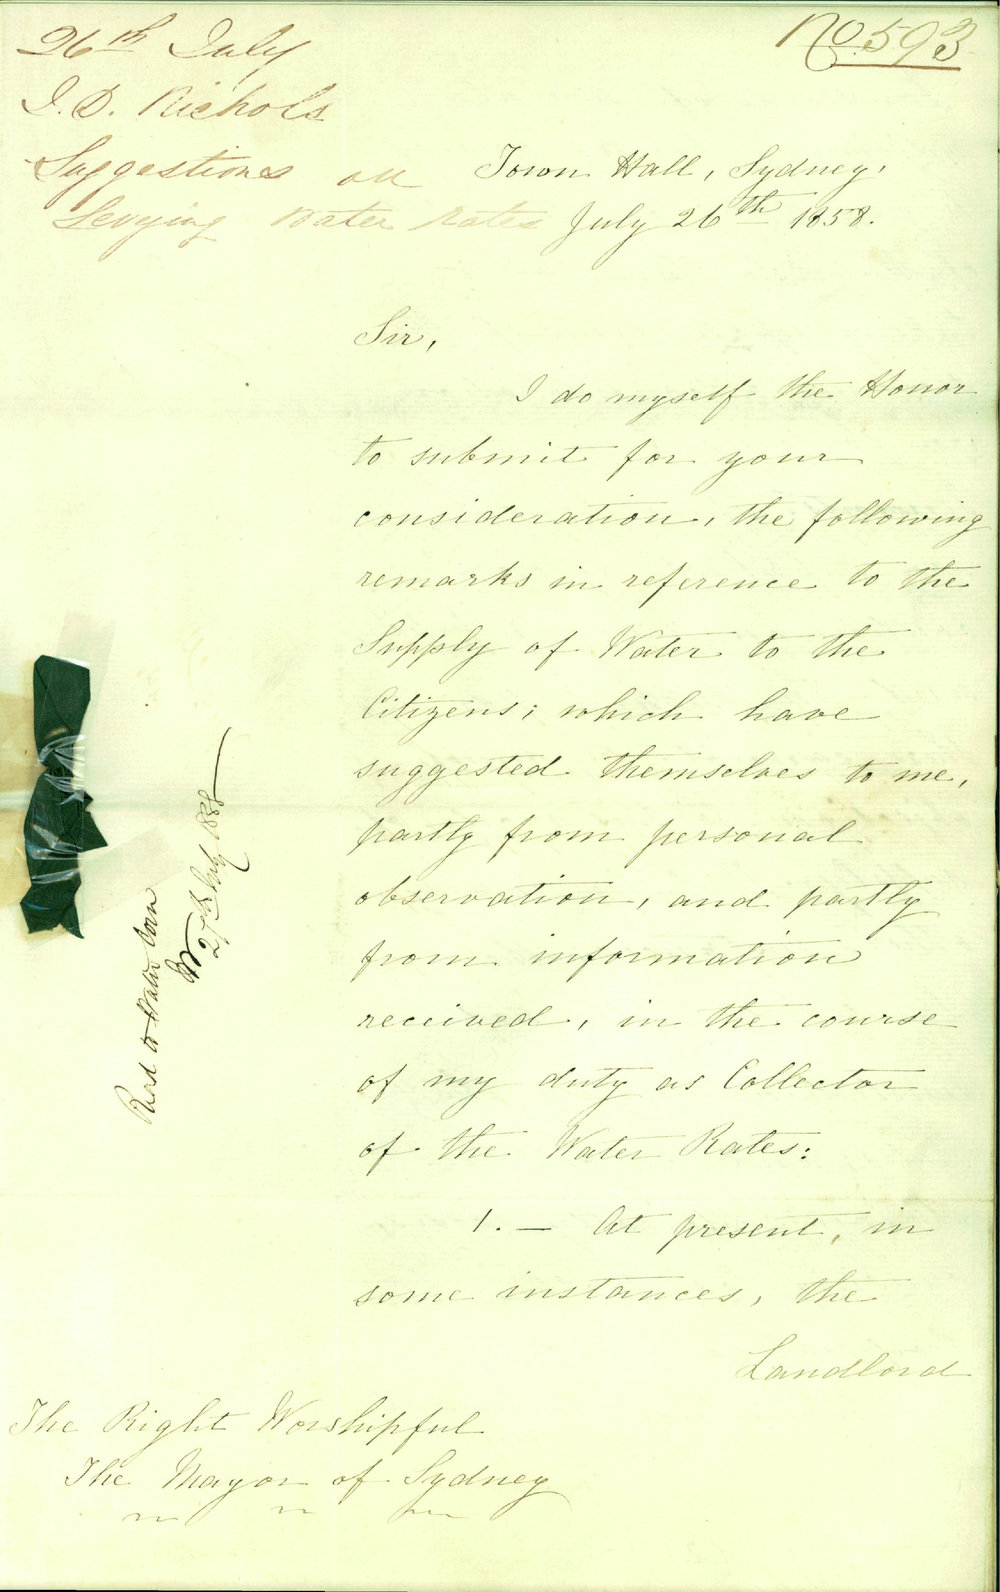 No. 593
26th July
J. D. Nichols
Suggestions on
Levying Water Rates
Town Hall, Sydney,
July 26th 1858.
Sir,
I do myself the Honor
to submit for your
consideration, the following
remarks in reference to the
Supply of Water to the
Citizens; which have
suggested themselves to me,
partly from personal
observation, and partly
from information
received, in the course
of my duty as Collector
of the Water Rates:
1. — At present, in
some instances, the
Landlord
The Right Worshipful
The Mayor of Sydney
Refd to Water Com
27th July 1858